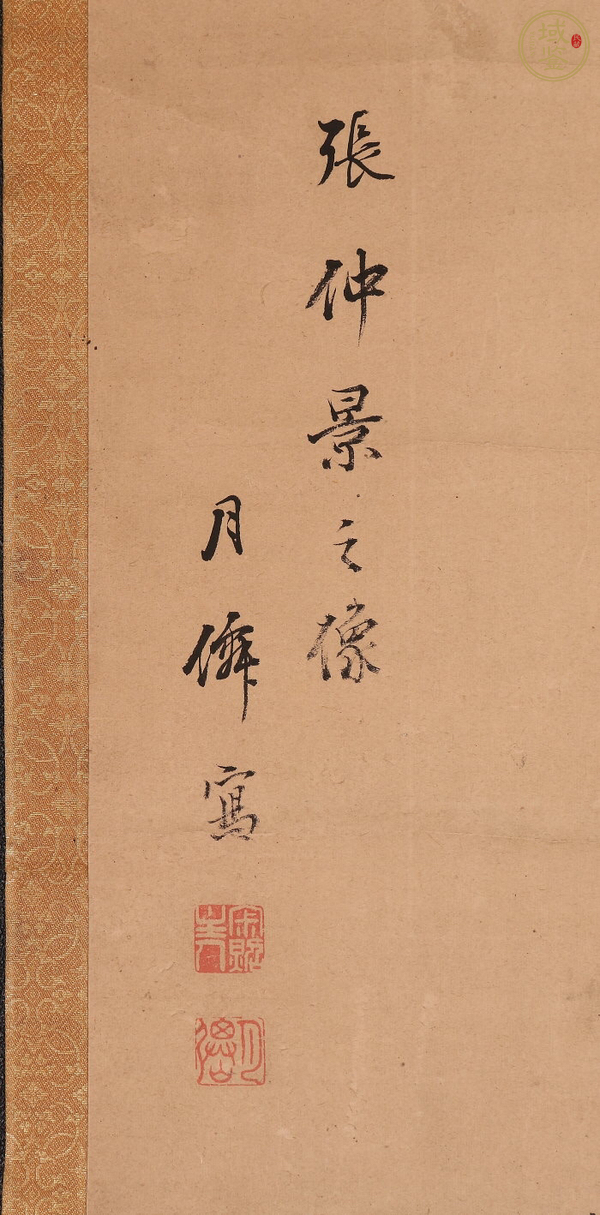 張仲景之像
月僊寫